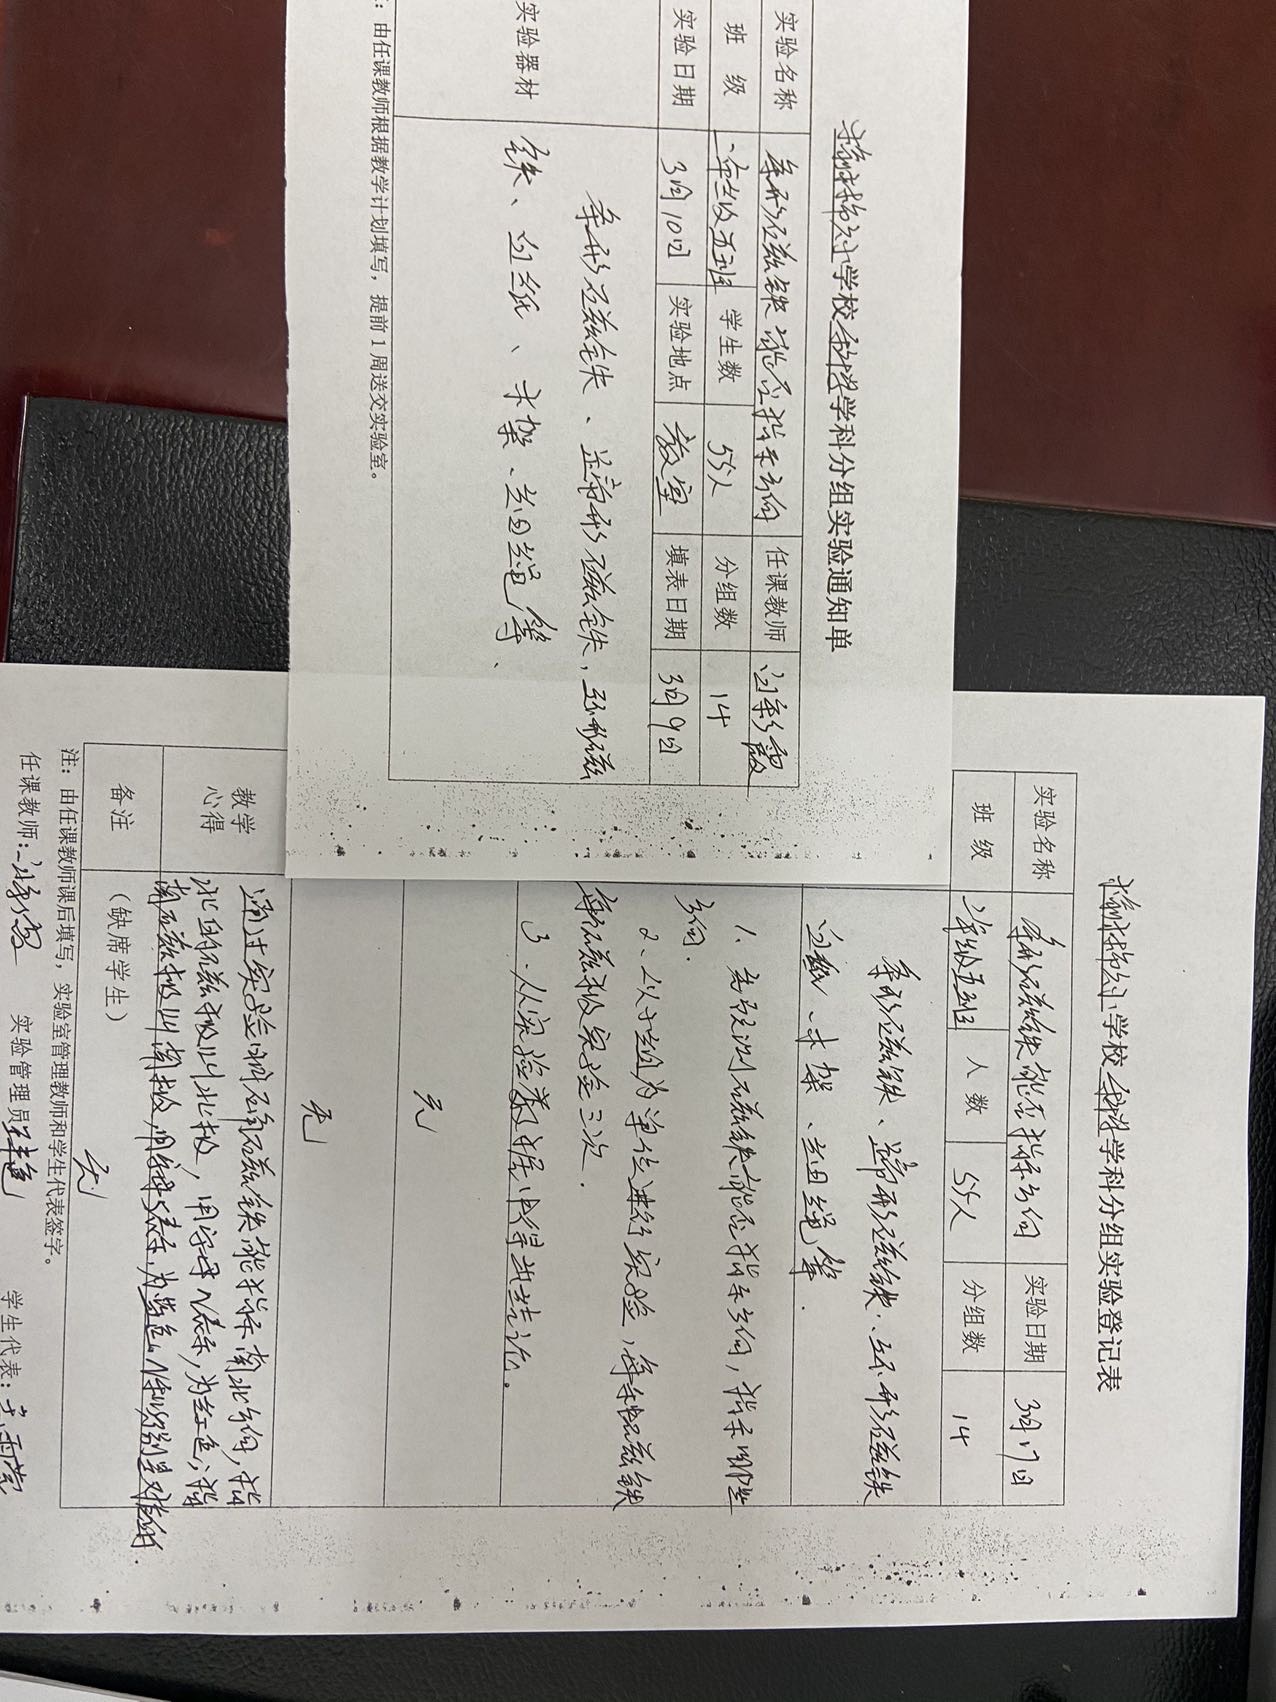 小学校科学学科分组实验通知单
实验名称 条形磁铁能否指示方向 任课教师
班级 二年级五班 学生数 55人 分组数 14
实验日期 3月10日 实验地点 教室 填表日期 3月9日
实验器材
条形磁铁、蹄形磁铁,环形磁
铁、白纸、木架、细绳等、
由任课教师根据教学计划填写,提前1周送交实验室。
小学校科学学科分组实验登记表
实验名称 条形磁铁能否指示方向 实验日期 3月17日
班级 二年级五班 人数 55人 分组数 14
条形磁铁、蹄形磁铁、环形磁铁
白纸、木架、细绳等.
1、先预测磁铁能否指示方向,指示哪些
方向.
2、以小组为单位进行实验,每块磁铁
每个磁极实验三次.
3、从实验数据中得出结论。
无
无
教学
心得
通过实验明后磁铁能指示南北方向,指
北的磁极叫北极,用字母N表示,为红色;指
南磁极叫南极,用字母S表示,为蓝色
备注 (缺席学生) 无
注:由任课教师课后填写,实验室管理教师和学生代表签字。
任课教师: 实验管理员 学生代表: